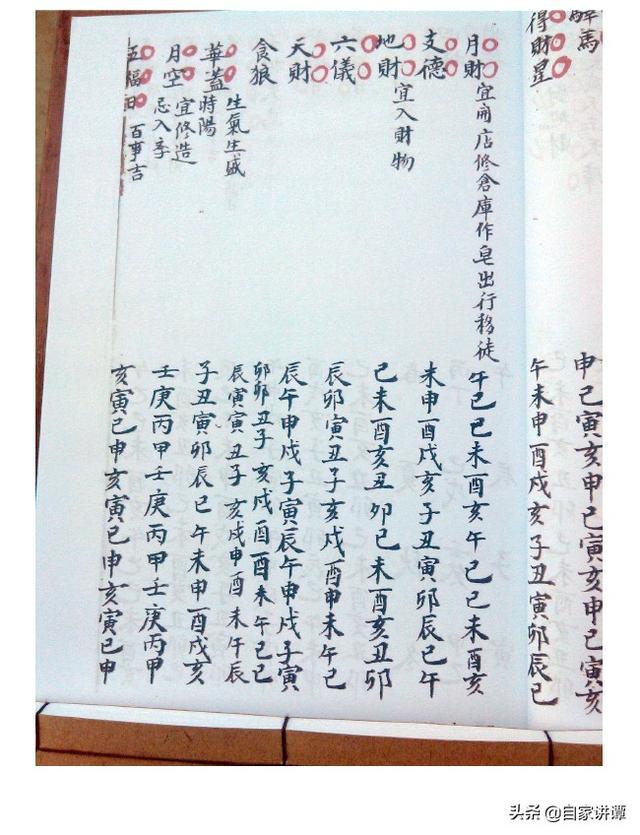 馬 申巳寅亥申巳寅亥申巳寅亥
得財星 午未申酉戌亥子丑寅卯辰巳
月財 宜開店修倉庫作皂出行移徒 午巳巳未酉亥午巳巳未酉亥
支德 未申酉戌亥子丑寅卯辰巳午
地財 宜入財物 巳未酉亥丑卯巳未酉亥丑卯
六儀 辰卯寅丑子亥戌酉申未午巳
天財 辰午申戌子寅辰午申戌子寅
食狼 卯卯丑子亥戌酉酉未午巳巳
生氣生盛 辰寅寅丑子亥戌申酉未午辰
華蓋 時陽 子丑寅卯辰巳午未申酉戌亥
月空 宜修造 忌入 壬庚丙甲壬庚丙甲壬庚丙甲
五福日 百事吉 亥寅巳申亥寅巳申亥寅巳申
头条 @自家讲谭